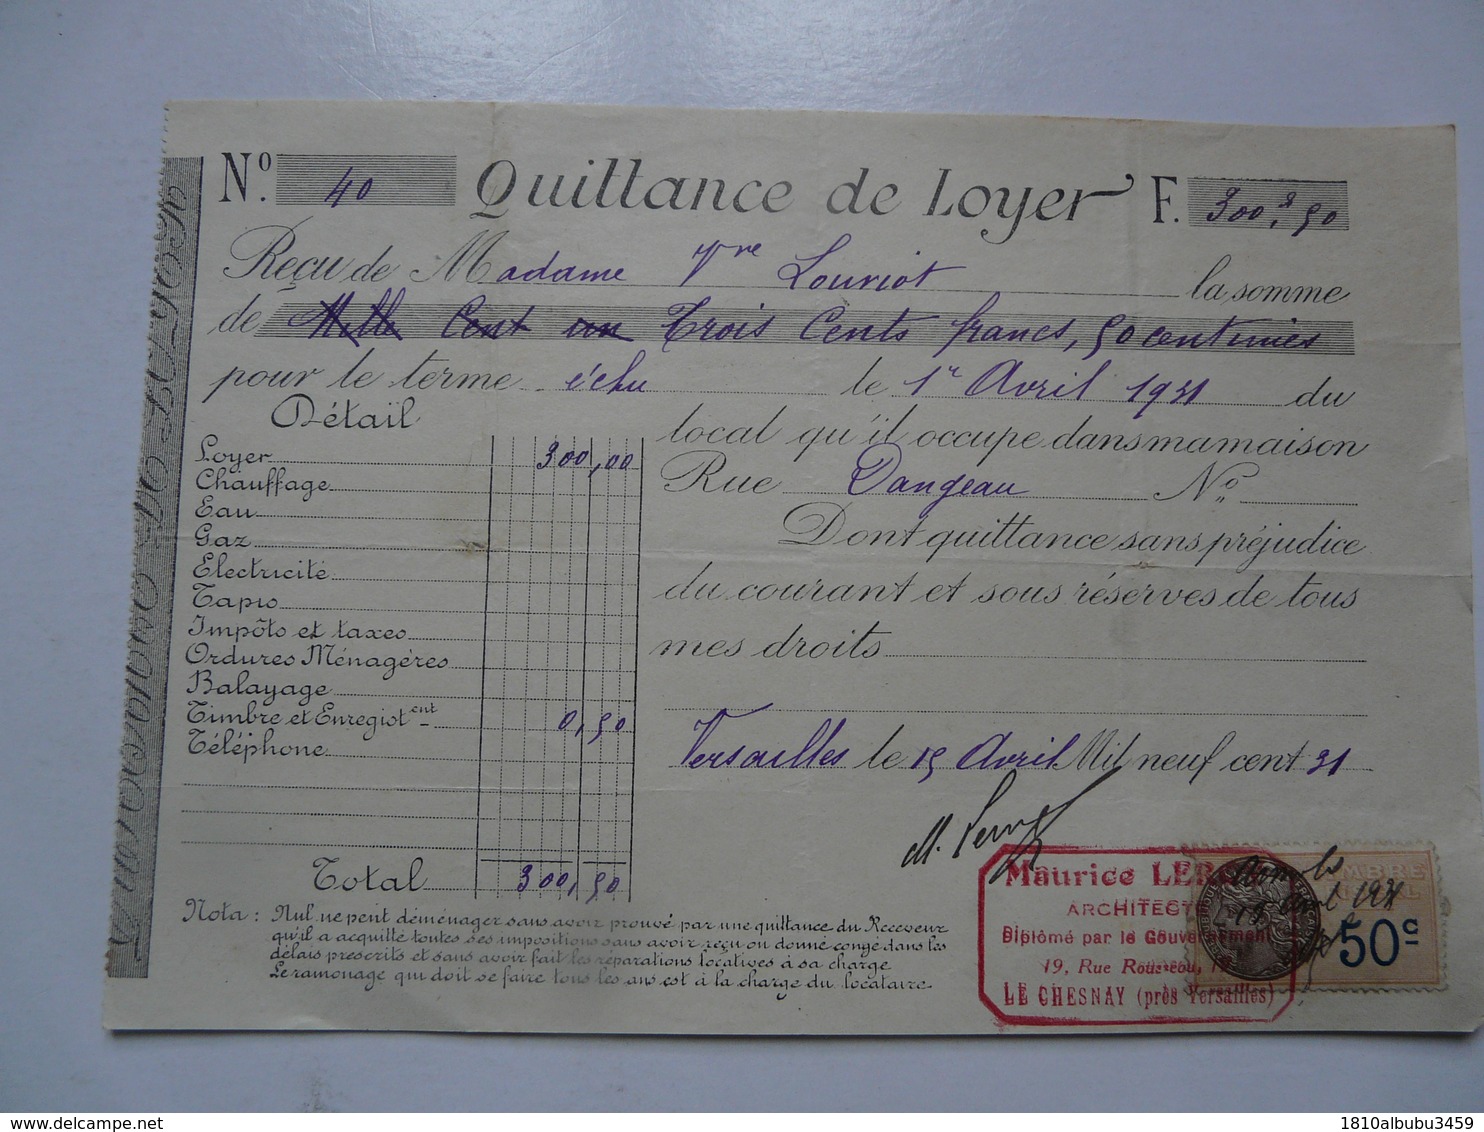 Nº 40 Quittance de Loyer F. 300,50
Reçu de Madame Vve Louriot la somme
de Mille Cent un Trois Cents francs, 50 centimes
pour le terme échu le 1er Avril 1931 du
Détail
local qu'il occupe dans ma maison
Loyer 300,00
Rue Dangeau Nº
Chauffage
Eau
Dont quittance sans préjudice
Gaz
Electricité
du courant et sous réserves de tous
Tapis
Impôts et taxes
mes droits
Ordures Ménagères
Balayage
Timbre et Enregistrent 0,50
Téléphone
Versailles le 15 Avril Mil neuf cent 31
Total 300,50
Maurice
ARCHITECTE
Diplômé par le Gouvernement
19, Rue
LE CHESNAY (près Versailles)
50c
Nota: Nul ne peut déménager sans avoir prouvé par une quittance du Receveur
qu'il a acquitté toutes ses impositions sans avoir reçu ou donné congé dans les
délais prescrits et sans avoir fait les réparations locatives à sa charge
Le ramonage qui doit se faire tous les ans est à la charge du locataire
1810albubu3459